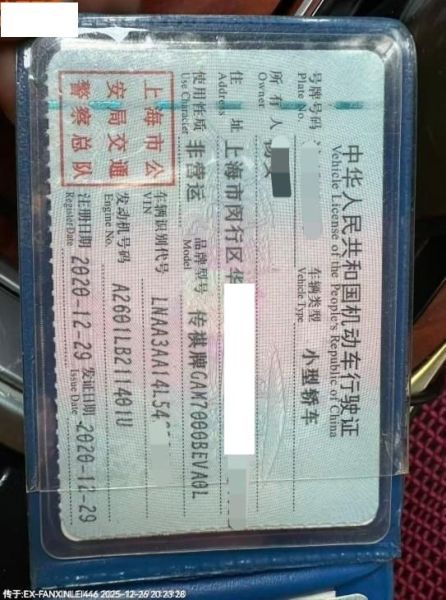 中华人民共和国机动车行驶证
Vehicle License of the People's Republic of China
号牌号码
Plate No.
车辆类型 小型轿车
Vehicle Type
所有人
Owner
住址 上海市闵行区
Address
使用性质 非营运
Use Character
品牌型号 传祺牌GAM7000BEVA0L
Model
上海市公
安局交通
警察总队
车辆识别代号 LNAA3AA14L54
VIN
发动机号码 A2601LB211401U
Engine No.
注册日期 2020-12-29
Register Date
发证日期 2020-12-29
Issue Date
传于:EX-FANXINLEI446 2025-12-26 20:23:28